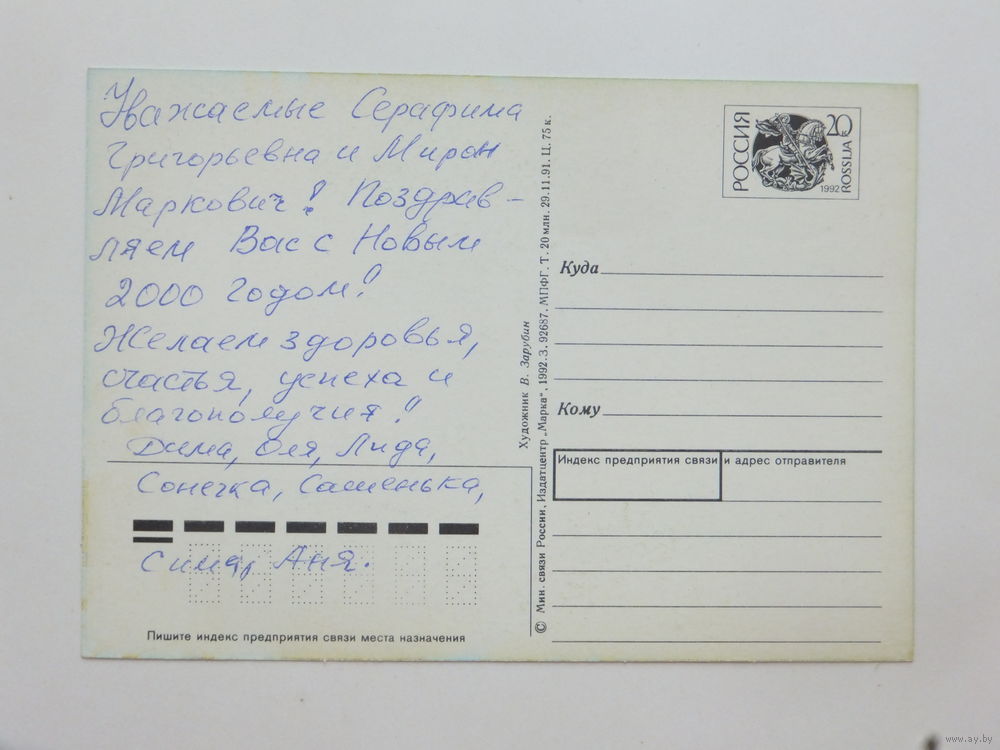 Уважаемые Серафима
Григорьевна и Мирон
Маркович! Поздрав-
ляем Вас с Новым
2000 годом!
Желаем здоровья,
счастья, успеха и
благополучия!
Дима, Оля, Лида,
Сонечка, Сашенька,
Сима, Аня.
Пишите индекс предприятия связи места назначения
Художник В. Зарубин
© Мин. связи России, Издатцентр „Марка", 1992. З. 92687. МПФГ. Т. 20 млн. 29.11.91. Ц. 75 к.
РОССИЯ
20 к
1992
ROSSIJA
Куда
Кому
Индекс предприятия связи и адрес отправителя
www.ay.by